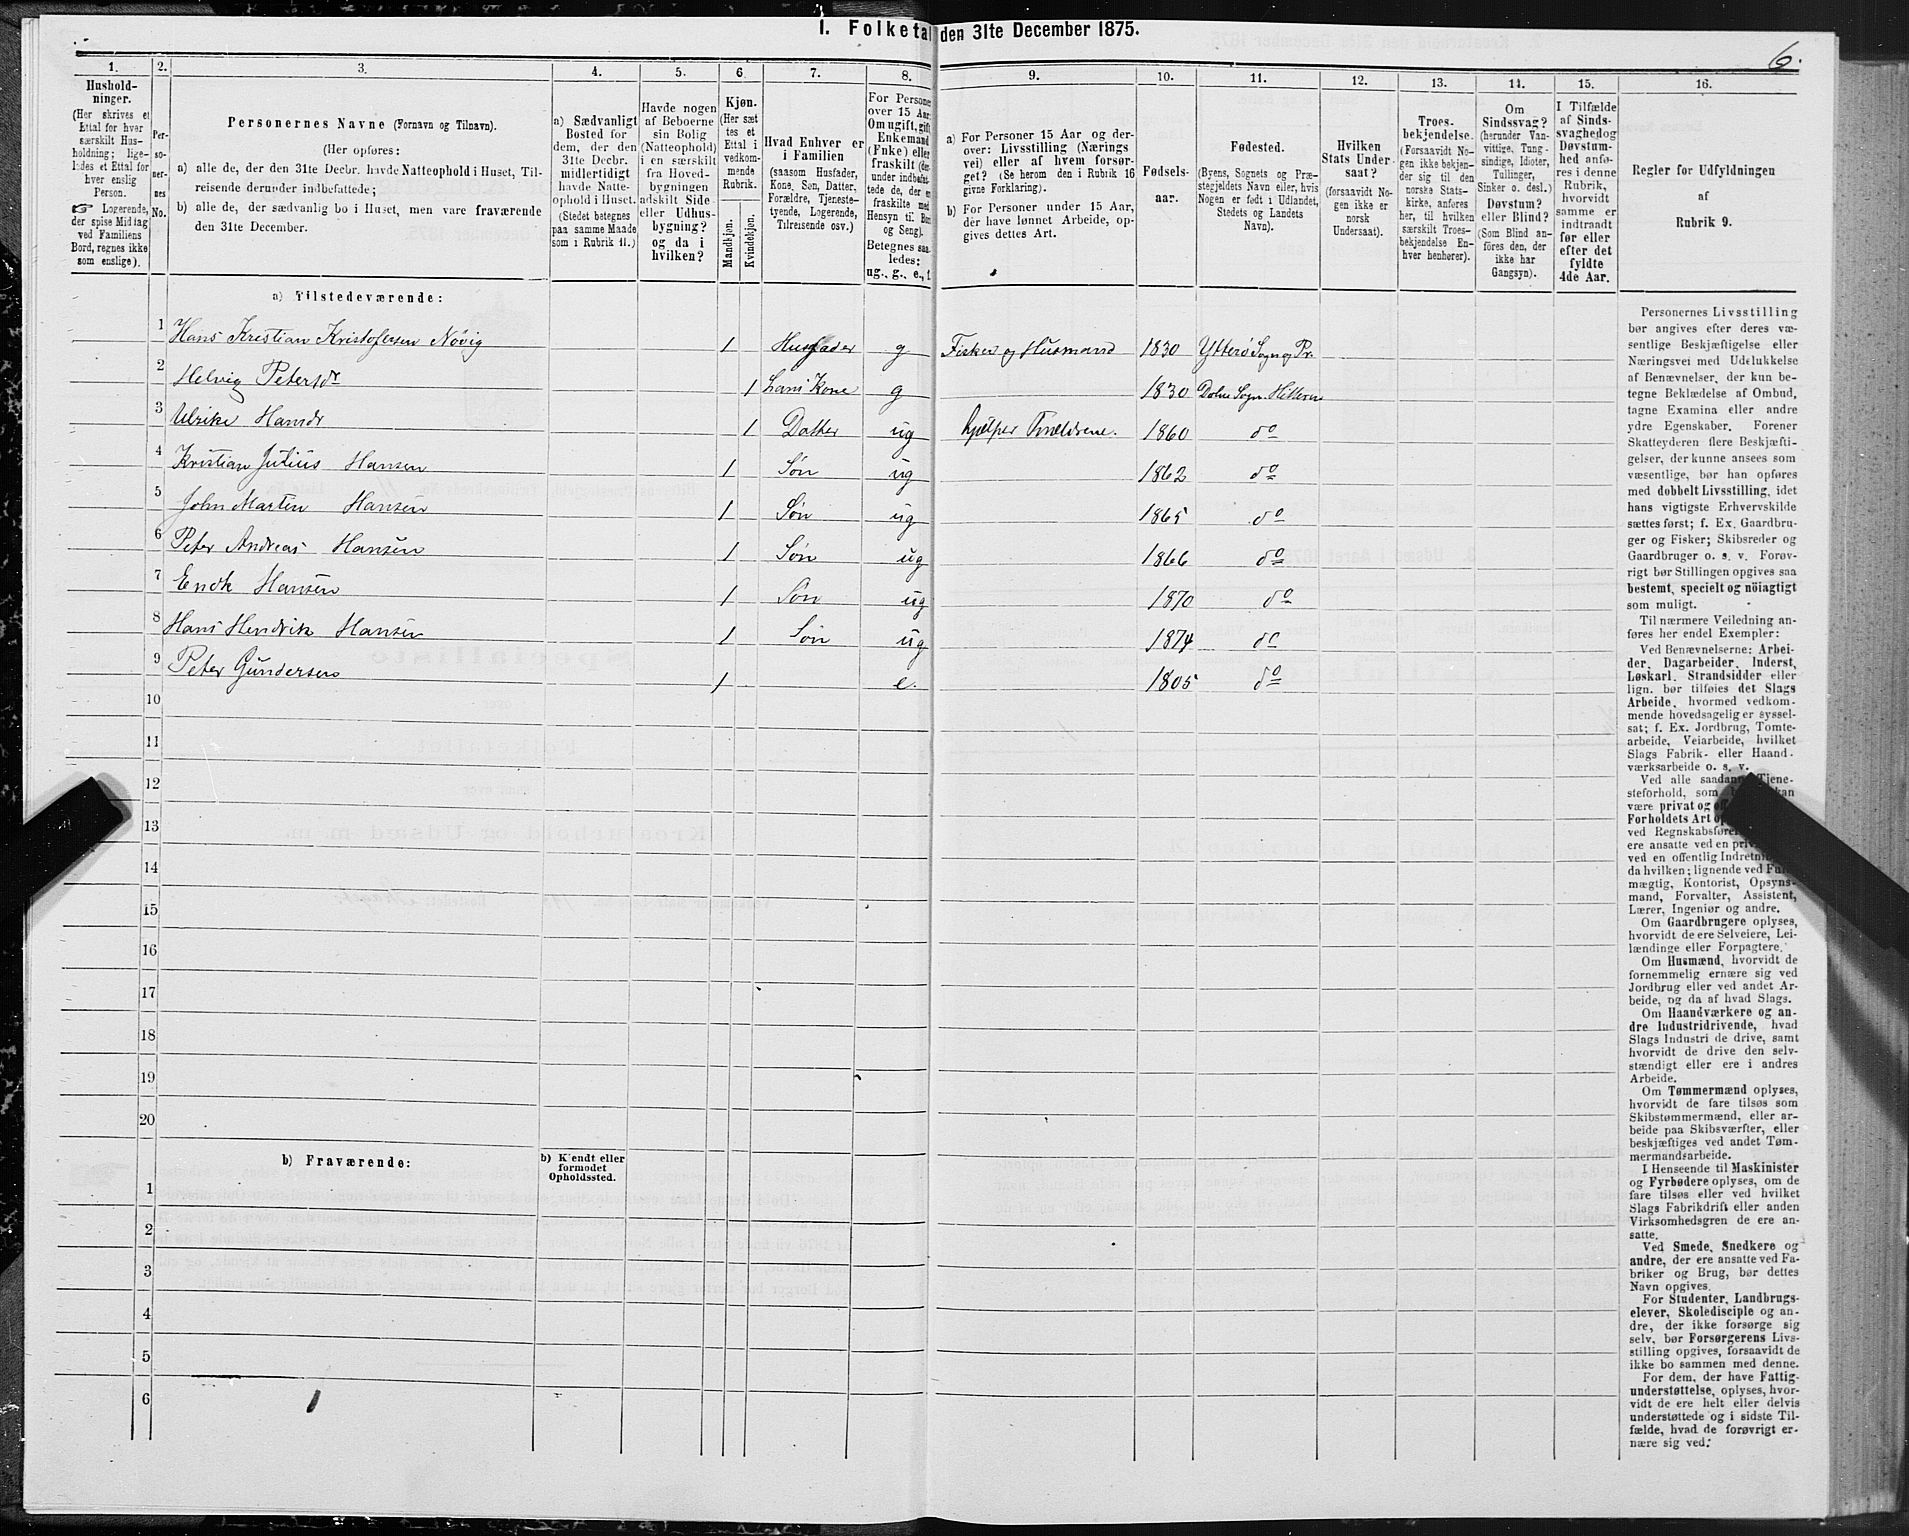 1. Folketal den 31te December 1875.
6.
1.
Hushold-
ninger.
(Her skrives et
Ettal for hver
særskilt Hus-
holdning; lige-
ledes et Ettal for
hver enslig
Person.
Logerende,
der spise Middag
ved Familiens
Bord, regnes ikke
som enslige).
2.
Per-
so-
ner-
nes
No.
3.
Personernes Navne (Fornavn og Tilnavn).
(Her opføres:
a) alle de, der den 31te Decbr. havde Natteophold i Huset, Til-
reisende derunder indbefattede;
b) alle de, der sædvanlig bo i Huset, men vare fraværende
den 31te December.
4.
a) Sædvanligt
Bosted for
dem, der den
31te Decbr.
midlertidigt
havde Natte-
ophold i Huset.
(Stedet betegnes
paa samme Maade
som i Rubrik 11.)
5.
Havde nogen
af Beboerne
sin Bolig
(Natteophold)
i en særskilt
fra Hoved-
bygningen
adskilt Side-
eller Udhus-
bygning?
og da i
hvilken?
6.
Kjøn.
(Her sæt
tes et
Ettal i
vedkom-
mende
Rubrik.
Mandkjøn.
Kvindekjøn.
7.
Hvad Enhver er
i Familien
(saasom Husfader,
Kone, Søn, Datter,
Forældre, Tjeneste-
tyende, Logerende,
Tilreisende osv.)
8.
For Personer
over 15 Aar:
Om ugift, gift,
Enkemand
(Enke) eller
fraskilt (der-
under indbefat-
tede de, der er
fraskilte med
Hensyn til Bord
og Seng).
Betegnes saa-
ledes:
ug., g., e., f.
9.
a) For Personer 15 Aar og der-
over: Livsstilling (Nærings
vei) eller af hvem forsør-
get? (Se herom den i Rubrik 16
givne Forklaring).
b) For Personer under 15 Aar,
der have lønnet Arbeide, op-
gives dettes Art.
10.
Fødsels-
aar.
11.
Fødested.
(Byens, Sognets og Præ-
stegjeldets Navn eller, hvis
Nogen er født i Udlandet,
Stedets og Landets
Navn).
12.
Hvilken
Stats Under-
saat?
(forsaavidt No-
gen ikke er
norsk
Undersaat).
13.
Troes-
bekjendelse.
(Forsaavidt No-
gen ikke bekjen-
der sig til den
norske Stats-
kirke, anføres
her, til hvilken
særskilt Troes-
bekjendelse En-
hver henhører).
14.
Om
Sindssvag?
(herunder Van-
vittige, Tung-
sindige, Idioter,
Tullinger,
Sinker o. desl.)
Døvstum?
eller Blind?
(Som Blind an-
føres den, der
ikke har
Gangsyn).
15.
I Tilfælde
af Sinds-
svaghedog
Døvstum-
hed anfø-
res i denne
Rubrik,
hvorvidt
samme er
indtraadt
før eller
efter det
fyldte
4de Aar.
16.
Regler for Udfyldningen
af
Rubrik 9.
a) Tilstedeværende:
1 Hans Kristian Kristofersen Nøvig 1 Husfader g Fisker og Husmand 1830 Ytterø Sogn og Pr
2 Helvig Petersdr 1 hans Kone g 1830 Dolm Sogn. Hitteren
3 Ulrike Hansdr 1 Datter ug hjælper Forældrene. 1860 do
4 Kristian Julius Hansen 1 Søn ug 1862 do
5 John Marten Hansen 1 Søn ug 1865 do
6 Peter Andreas Hansen 1 Søn ug 1866 do
7 Hansen 1 Søn ug 1870 do
8 Hans Hendrik Hansen 1 Søn ug 1874 do
9 Peter Gundersen 1 e. 1805 do
10
11
12
13
14
15
16
17
18
19
20
b) Fraværende:
b) Kjendt eller
formodet
Opholdssted.
1
2
3
4
5
6
Personernes Livsstilling
bør angives efter deres væ-
sentlige Beskjæftigelse eller
Næringsvei med Udelukkelse
af Benævnelser, der kun be-
tegne Beklædelse af Ombud,
tagne Examina eller andre
ydre Egenskaber. Forener
Skatteyderen flere Beskjæfti-
gelser, der kunne ansees som
væsentlige, bør han opføres
med dobbelt Livsstilling, idet
hans vigtigste Erhvervskilde
sættes først; f. Ex. Gaardbru-
ger og Fisker; Skibsreder og
Gaardbruger o. s. v. Forøv-
rigt bør Stillingen opgives saa
bestemt, specielt og nöiagtigt
som muligt.
Til nærmere Veiledning an-
føres her endel Exempler:
Ved Benævnelserne: Arbei-
der, Dagarbeider, Inderst,
Løskarl, Strandsidder eller
lign. bør tilføies det Slags
Arbeide, hvormed vedkom-
mende hovedsagelig er syssel-
sat; f. Ex. Jordbrug, Tomte-
arbeide, Veiarbeide, hvilket
Slags Fabrik- eller Haand-
værksarbeide o. s. v.
Ved alle saadanne Tjene-
steforhold, som kan
være privat og
Forholdets Art
ved Regnskabsfører
ere ansatte ved en
ved en offentlig Indretning
da hvilken; lignende ved Fuld-
mægtig, Kontorist, Opsyns-
mand, Forvalter, Assistent,
Lærer, Ingeniør og andre.
Om Gaardbrugere oplyses,
hvorvidt de ere Selveiere, Lei-
lændinge eller Forpagtere.
Om Husmænd, hvorvidt de
fornemmelig ernære sig ved
Jordbrug eller ved andet Ar-
beide, og da af hvad Slags.
Om Haandværkere og an-
dre Industridrivende, hvad
Slags Industri de drive, samt
hvorvidt de drive den selv-
stændigt eller ere i andres
Arbeide.
Om Tømmermænd oplyses,
hvorvidt de fare tilsøs som
Skibstømmermænd, eller ar-
beide paa Skibsværfter, eller
beskjæftiges ved andet Tøm-
mermandsarbeide.
I Henseende til Maskinister
og Fyrbødere oplyses, om de
fare tilsøs eller ved hvilket
Slags Fabrikdrift eller anden
Virksomhedsgren de ere an-
satte.
Ved Smede, Snedkere og
andre, der ere ansatte ved Fa-
briker og Brug, bør dettes
Navn opgives.
For Studenter, Landbrugs-
elever, Skoledisciple og an-
dre, der ikke forsørge sig
selv, bør Forsørgerens Livs-
stilling opgives, forsaavidt de
ikke bo sammen med denne.
For dem, der have Fattig-
understøttelse, oplyses, hvor-
vidt de ere helt eller delvis
understøttede og i sidste Til-
fælde, hvad de forøvrigt er-
nære sig ved.